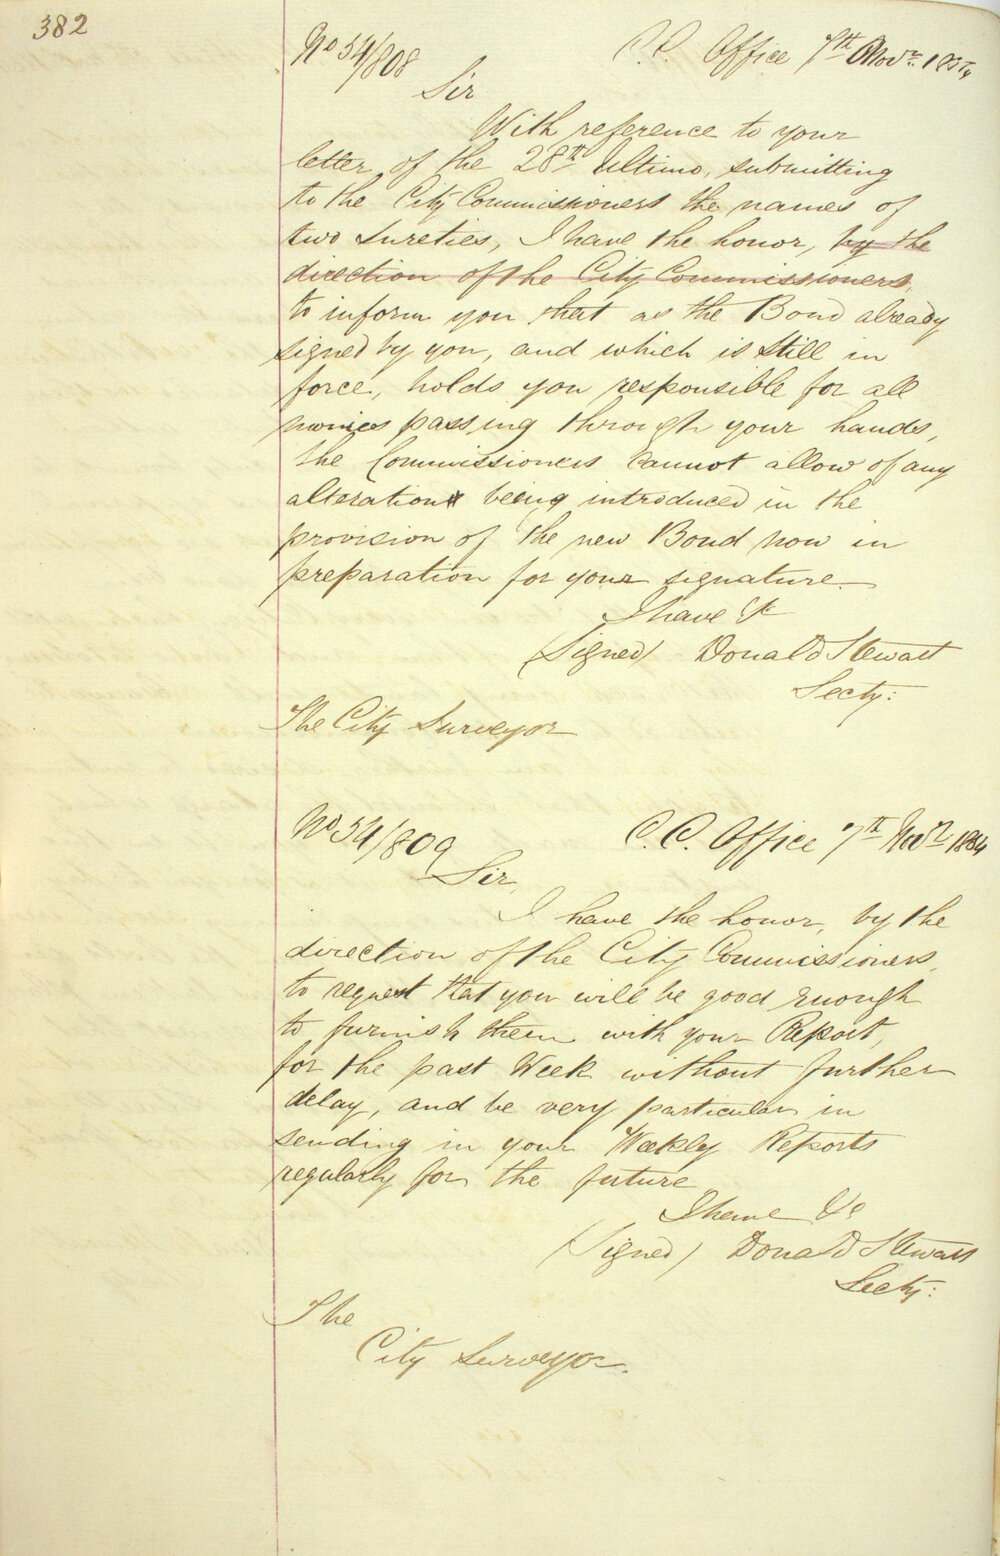 382
No 54/808
C. C. Office 7th Novr. 1854
Sir
With reference to your
letter of the 28th Ultimo, submitting
to the City Commissioners the names of
two Sureties, I have the honor, by the
direction of the City Commissioners,
to inform you that as the Bond already
signed by you, and which is still in
force, holds you responsible for all
monies passing through your hands,
the Commissioners cannot allow of any
alterations being introduced in the
provision of the new Bond now in
preparation for your signature
I have &c
(Signed) Donald Stewart
Secty:
The City Surveyor
No 54/809
C. C. Office 7th Novr 1854
Sir,
I have the honor, by the
direction of the City Commissioners,
to request that you will be good enough
to furnish them with your Report,
for the past Week without further
delay, and be very particular in
sending in your Weekly Reports
regularly for the future
I have &c
(Signed) Donald Stewart
Secty:
The
City Surveyor.